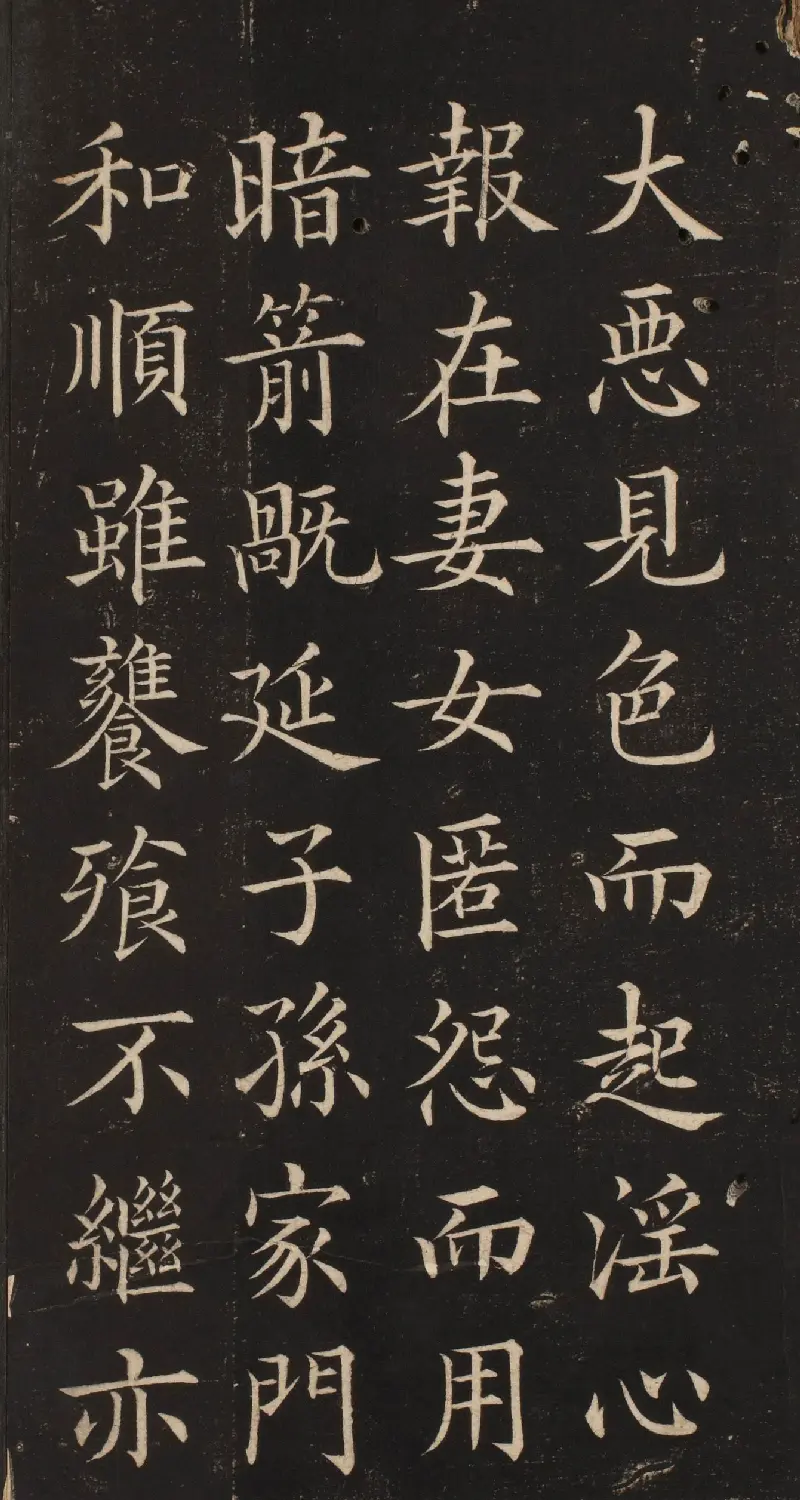 大惡見色而起淫心
報在妻女匿怨而用
暗箭禍延子孫家門
和順雖饔飧不繼亦